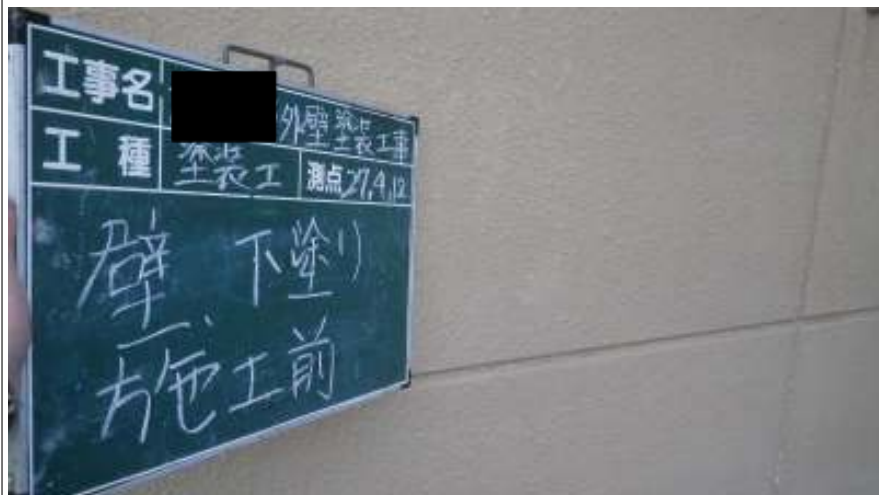 工事名 外壁塗装工事
工種 塗装工 測点 27.4.12
壁、下塗り
施工前